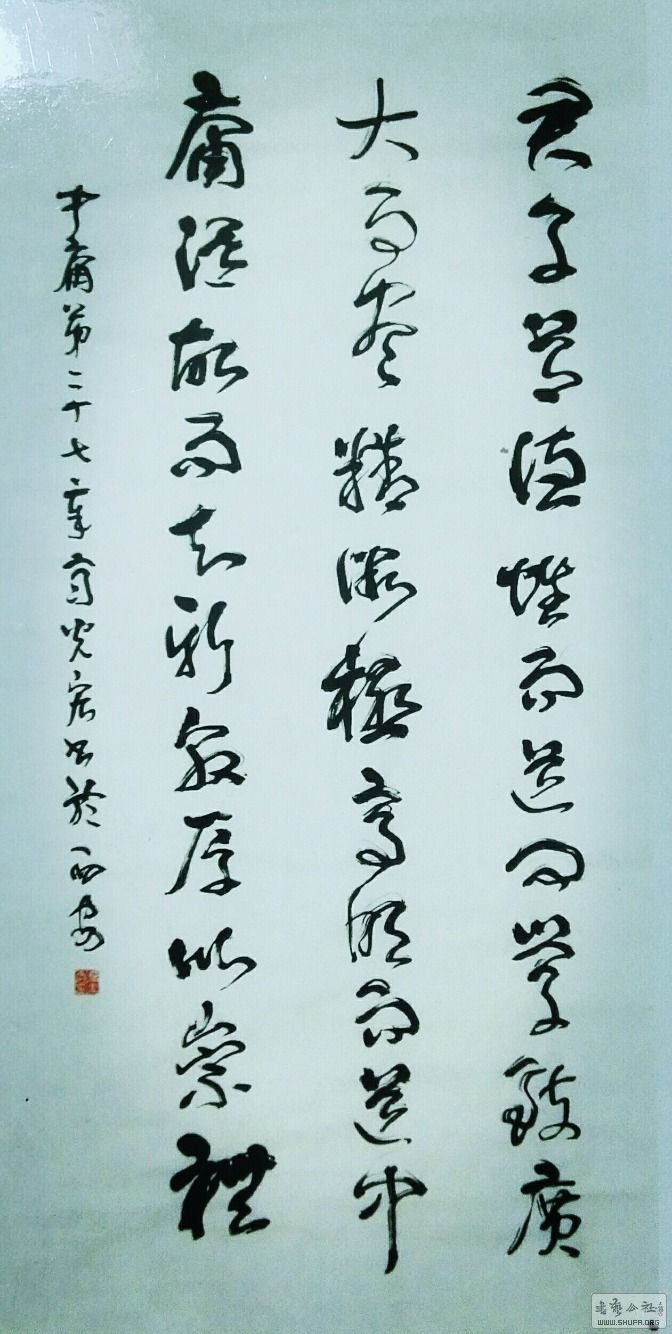 君子尊德性而道問學致廣
大而盡精微極高明而道中
庸溫故而知新敦厚以崇禮
中庸第二十七章光宏書於西安
書藝公社
WWW.SHUFA.ORG